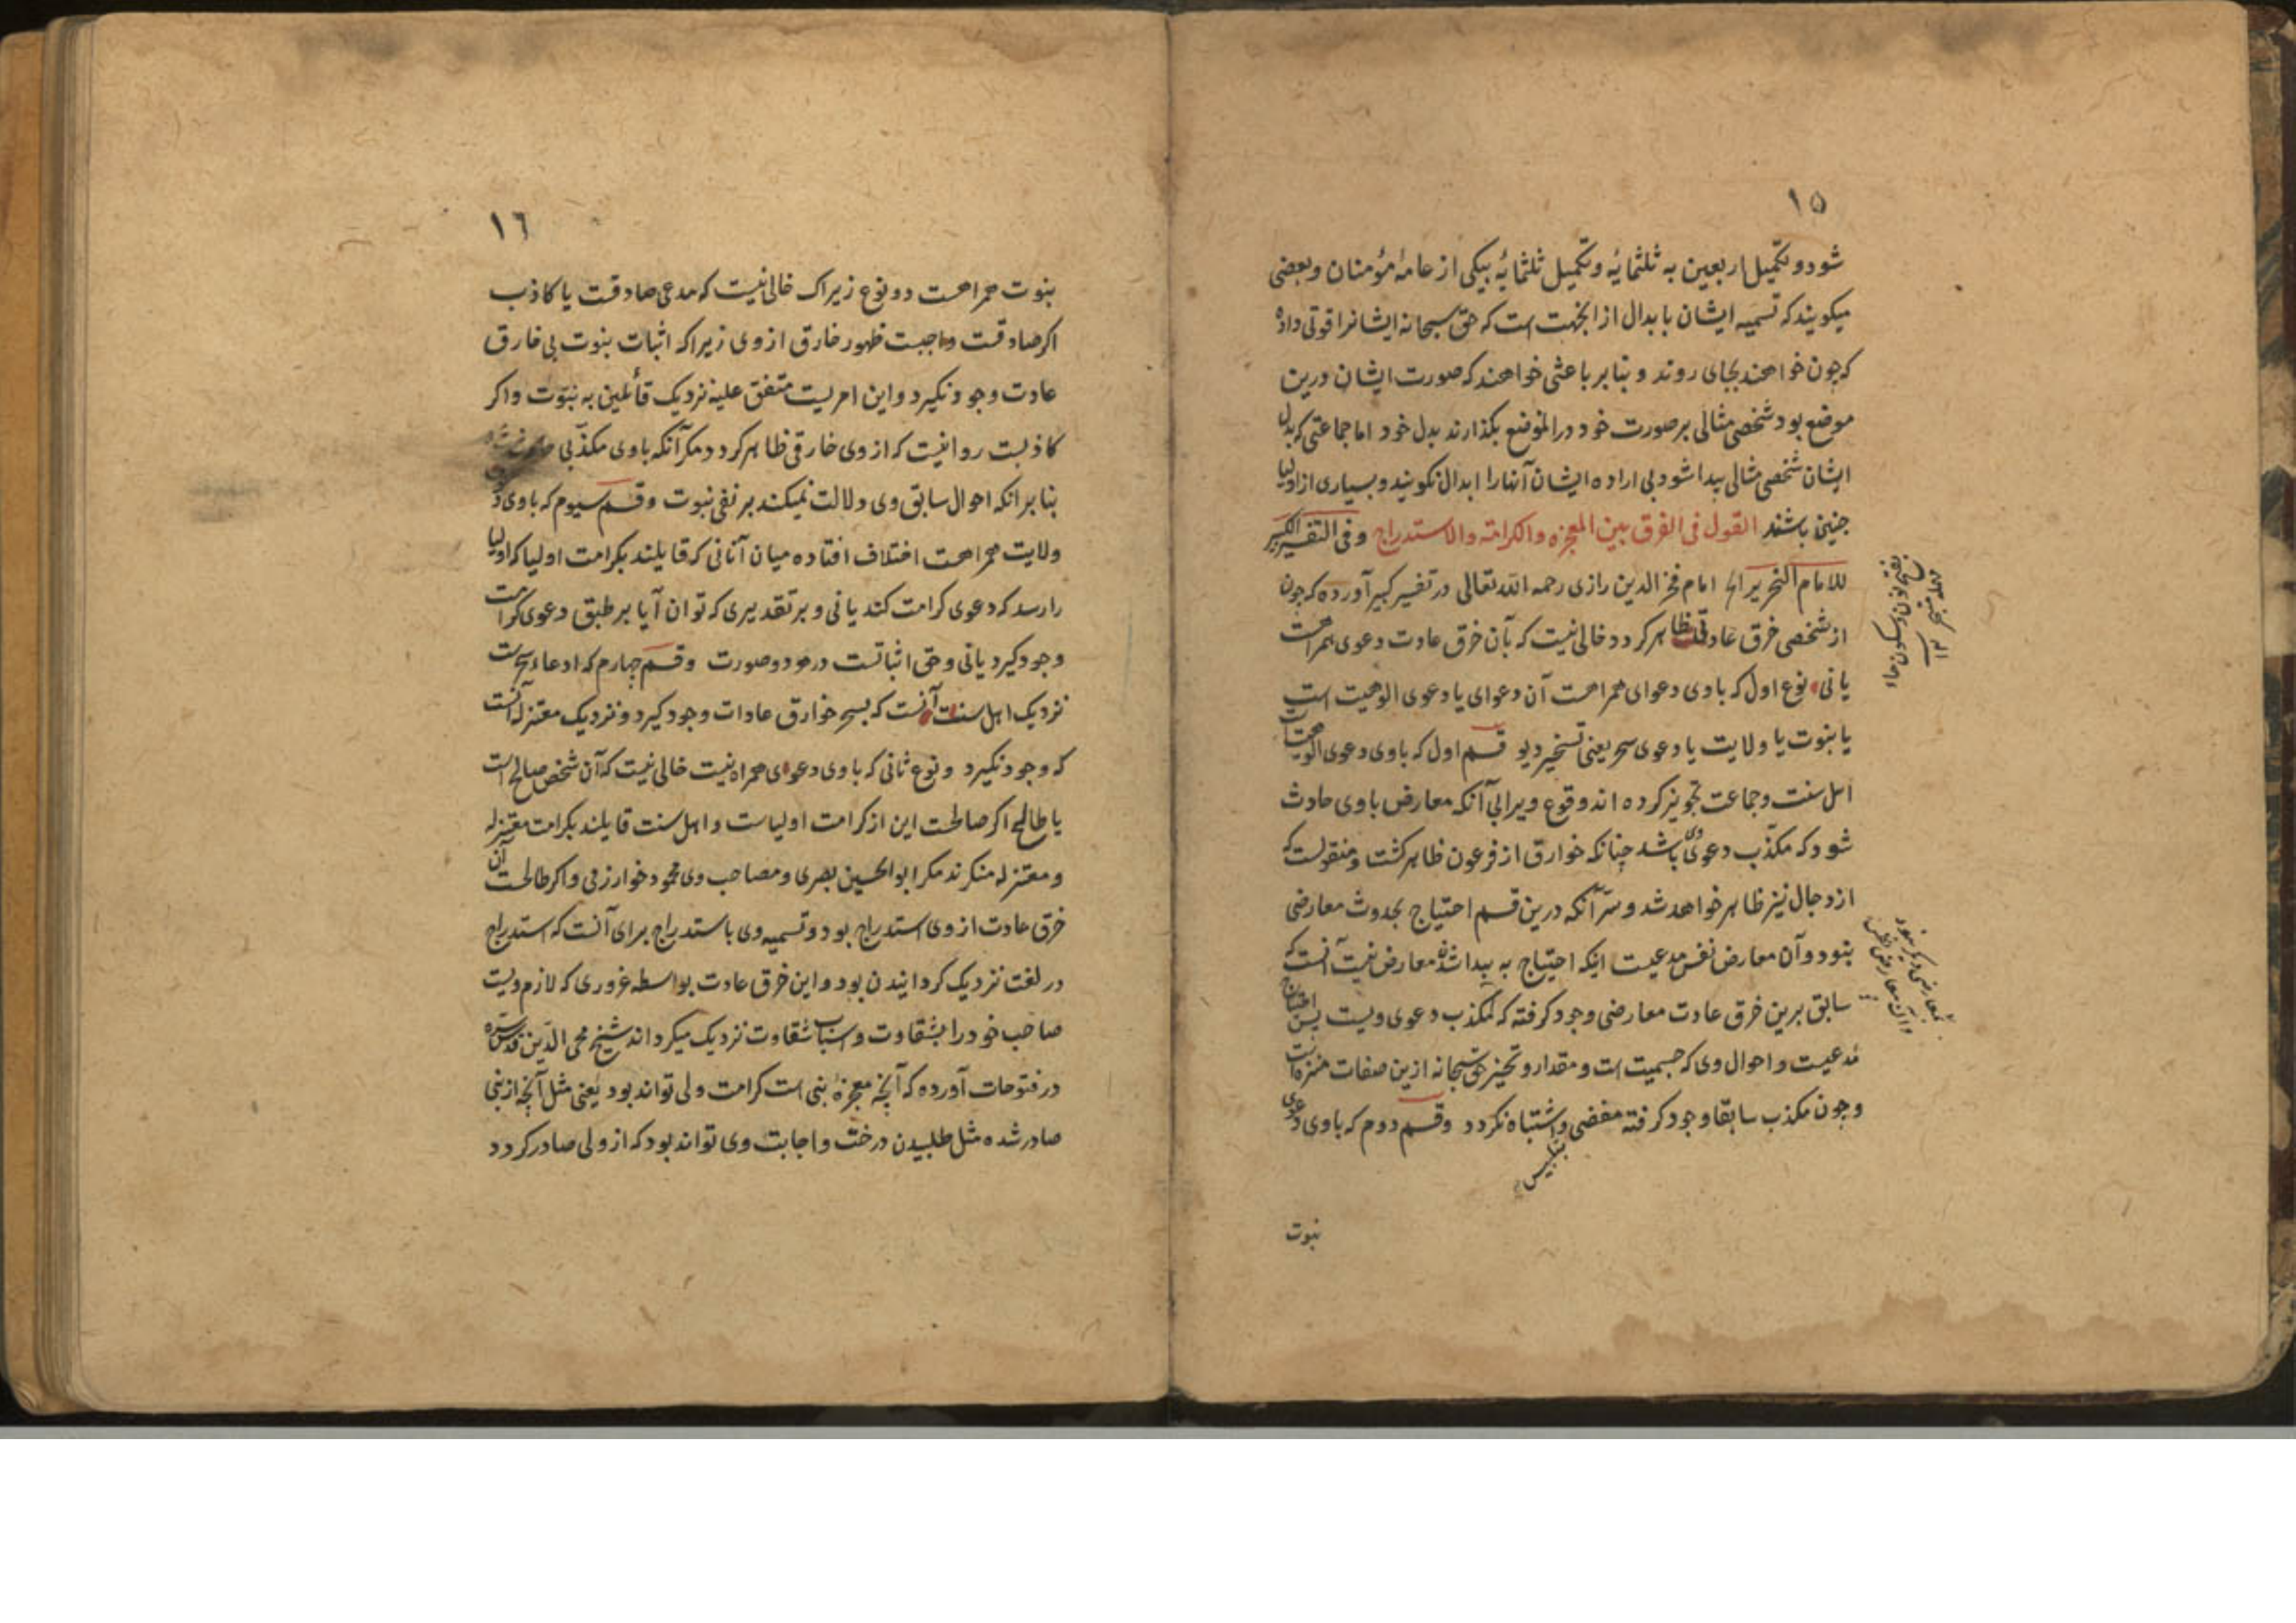 ١٥
شود و تکمیل اربعین به ثلثمایه و تکمیل ثلثمائه بیکی از عامهٔ مؤمنان و بعضی
میکویند که تسمیه ایشان بابدال از انجهت است که حق سبحانه ایشانرا قوتی داده
که چون خواهند بجای روند و بنا بر باعثی خواهند که صورت ایشان درین
موضع بود شخصی مثالی بر صورت خود در انموضع بکذارند بدل خود اما جماعتی که بدل
ایشان شخصی مثالی پیدا شود بی اراده ایشان آنهارا ابدال نکویند و بسیاری از اولیا
چنین باشند القول فی الفرق بین المعجزه والکرامة والاستدراج وفی التفسیر الکبیر
للامام النحریر الخ امام فخر الدین رازی رحمه الله تعالی در تفسیر کبیر آورده که چون
از شخصی خرق عادتی ظاهر کردد خالی نیست که بآن خرق عادت دعوی همراهست
یا نی نوع اول که باوی دعوای همراهست آن دعوای یا دعوی الوهیت است
یا نبوت یا ولایت یا دعوی سحر یعنی تسخیر دیو قسم اول که باوی دعوی الوهیت است
اهل سنت و جماعت تجویز کرده اند وقوع ویرا بی آنکه معارض باوی حادث
شود که مکذب دعوی وی باشد چنانکه خوارق از فرعون ظاهر کشت و منقولست که
از دجال نیز ظاهر خواهد شد و سر آنکه درین قسم احتیاج بحدوث معارضی
نبود و آن معارض نفس مدعیست اینکه احتیاج به پیدا شدن معارض نیست آنست که
سابق برین خرق عادت معارضی وجود کرفته که مکذب دعوی ویست پس احتیاج
مدعیست و احوال وی که جسمیت است و مقدار و تحیز حق سبحانه ازین صفات منزه است
و چون مکذب سابقا وجود کرفته مفضی و اشتباه نکردد و قسم دوم که باوی دعوی
نبوت
بفتح نون و سکون حاء
مهمله
١٦
نبوت همراهست دو نوع زیراک خالی نیست که مدعی صادقت یا کاذب
اکر صادقت واجبست ظهور خارق از وی زیرا که اثبات نبوت بی خارق
عادت وجود نکیرد و این امریست متفق علیه نزدیک قائلین به نبوت و اکر
کاذبت روانیست که از وی خارقی ظاهر کردد مکر آنکه باوی مکذبی
بنابر انکه احوال سابق وی دلالت نمیکند بر نفی نبوت و قسم سیوم که باوی
ولایت همراهست اختلاف افتاده میان آنانی که قایلند بکرامت اولیا که اولیا
را رسد که دعوی کرامت کند یا نی و بر تقدیری که توان آیا بر طبق دعوی کرامت
وجود کیرد یا نی و حق اثباتست در هر دو صورت و قسم چهارم که ادعاء سحرست
نزدیک اهل سنت آنست که بسحر خوارق عادات وجود کیرد و نزدیک معتزله آنست
که وجود نکیرد و نوع ثانی که باوی دعوای همراه نیست خالی نیست که آن شخص صالح است
یا طالح اکر صالحست این از کرامت اولیاست و اهل سنت قایلند بکرامت معتزله
و معتزله منکرند مکر ابو الحسین بصری و مصاحب وی محمود خوارزمی و اکر طالحست آن
خرق عادت از وی استدراج بود و تسمیه وی باستدراج برای آنست که استدراج
در لغت نزدیک کردانیدن بود و این خرق عادت بواسطه غروری که لازم ویست
صاحب خودرا بشقاوت و اسباب شقاوت نزدیک میکرداند شیخ محی الدین قدس سره
در فتوحات آورده که آنچه معجزهٔ نبی است کرامت ولی تواند بود یعنی مثل آنچه از نبی
صادر شده مثل طلبیدن درخت و اجابت وی تواند بود که از ولی صادر کردد